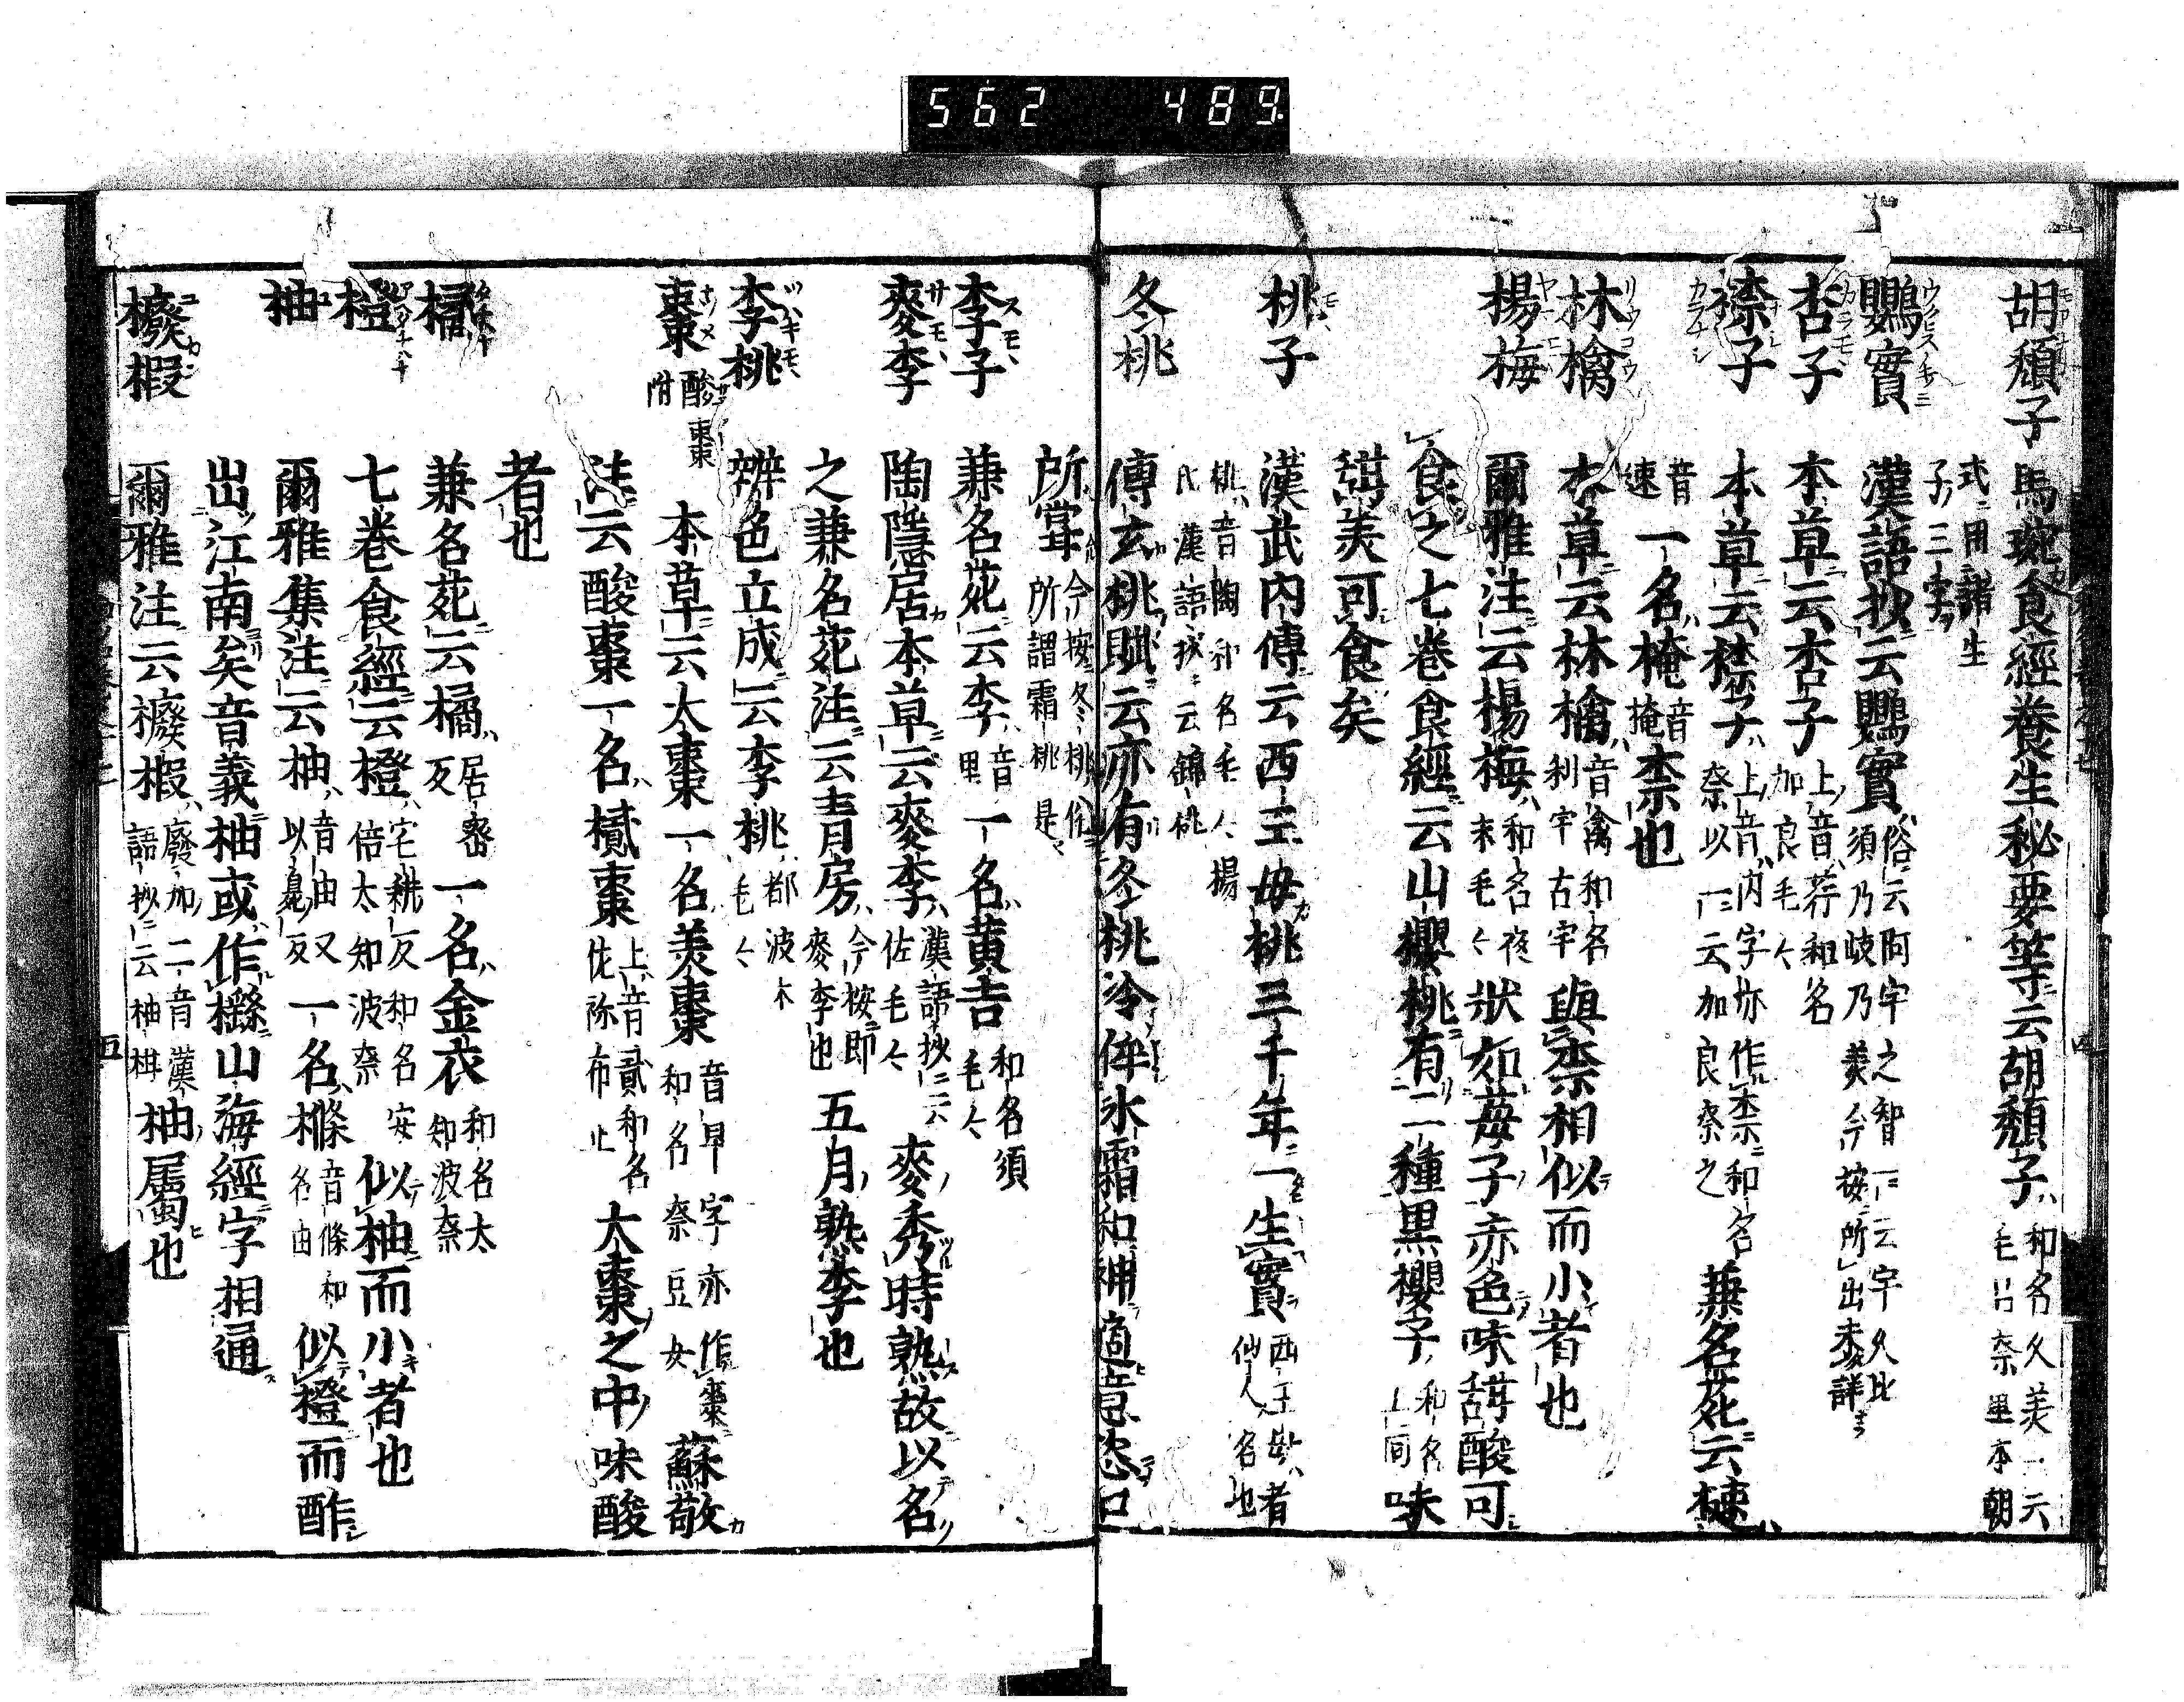 562 489
胡頹子 馬琬食經養生秘要等云胡頹子 和名久美一云毛呂奈里本朝
式用諸生子三字
鸎實 漢語抄云鸎實 俗云阿宇之智一云宇久比須乃岐乃美今按所出未詳
杏子 本草云杏子 上音荇和名加良毛々
柰子 本草云㮈子 上音内字亦作柰和名奈以一云加良奈之 兼名苑云楝
音速 一名㮋 音掩 柰也
林檎 本草云林檎 音禽和名利宇古宇 與柰相似而小者也
楊梅 爾雅注云楊梅 和名夜末毛々 狀如莓子赤色味甜酸可
食之七卷食經云山櫻桃有二種黑櫻子 和名上同 味
甜美可食矣
桃子 漢武内傳云西王母桃三千年一生實 西王母者仙人名也
桃音陶和名毛々楊氏漢語抄云錦桃
冬桃 傅玄桃賦云亦有冬桃冷侔氷霜和神適意恣口
所嘗 今按冬桃俗所謂霜桃是
李子 兼名苑云李 音里 一名黄吉 和名須毛々
麥李 陶隱居本草云麥李 漢語抄云佐毛々 麥秀時熟故以名
之兼名苑注云青房 今按即麥李也 五月熟李也
李桃 辨色立成云李桃 都波木毛々
棗 酸棗附 本草云大棗一名美棗 音早字亦作𬃷和名奈豆女 蘇敬
注云酸棗一名樲棗 上音貳和名佐祢布止 大棗之中味酸
者也
橘 兼名苑云橘 居密反 一名金衣 和名太知波奈
橙 七卷食經云橙 宅耕反和名安倍太知波奈 似柚而小者也
柚 爾雅集注云柚 音由又以臭反 一名樤 音條和名由 似橙而酢
出江南矣音義柚或作櫾山海經字相通
櫠椵 爾雅注云櫠椵 廢加二音漢語抄云柚柑 柚屬也
五